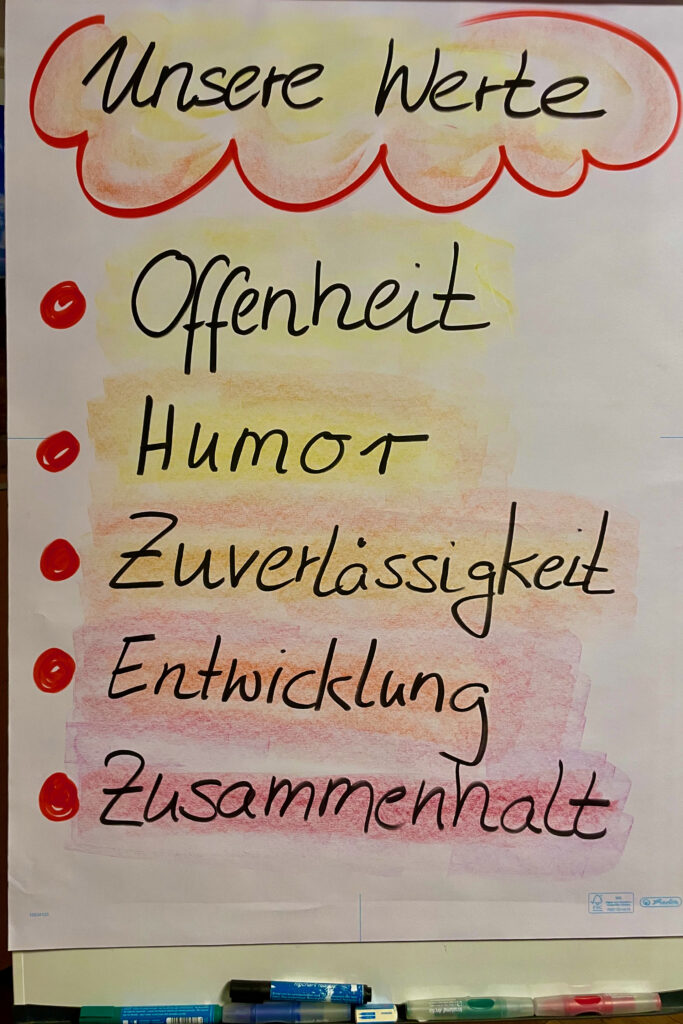 Unsere Werte
Offenheit
Humor
Zuverlässigkeit
Entwicklung
Zusammenhalt
FSC